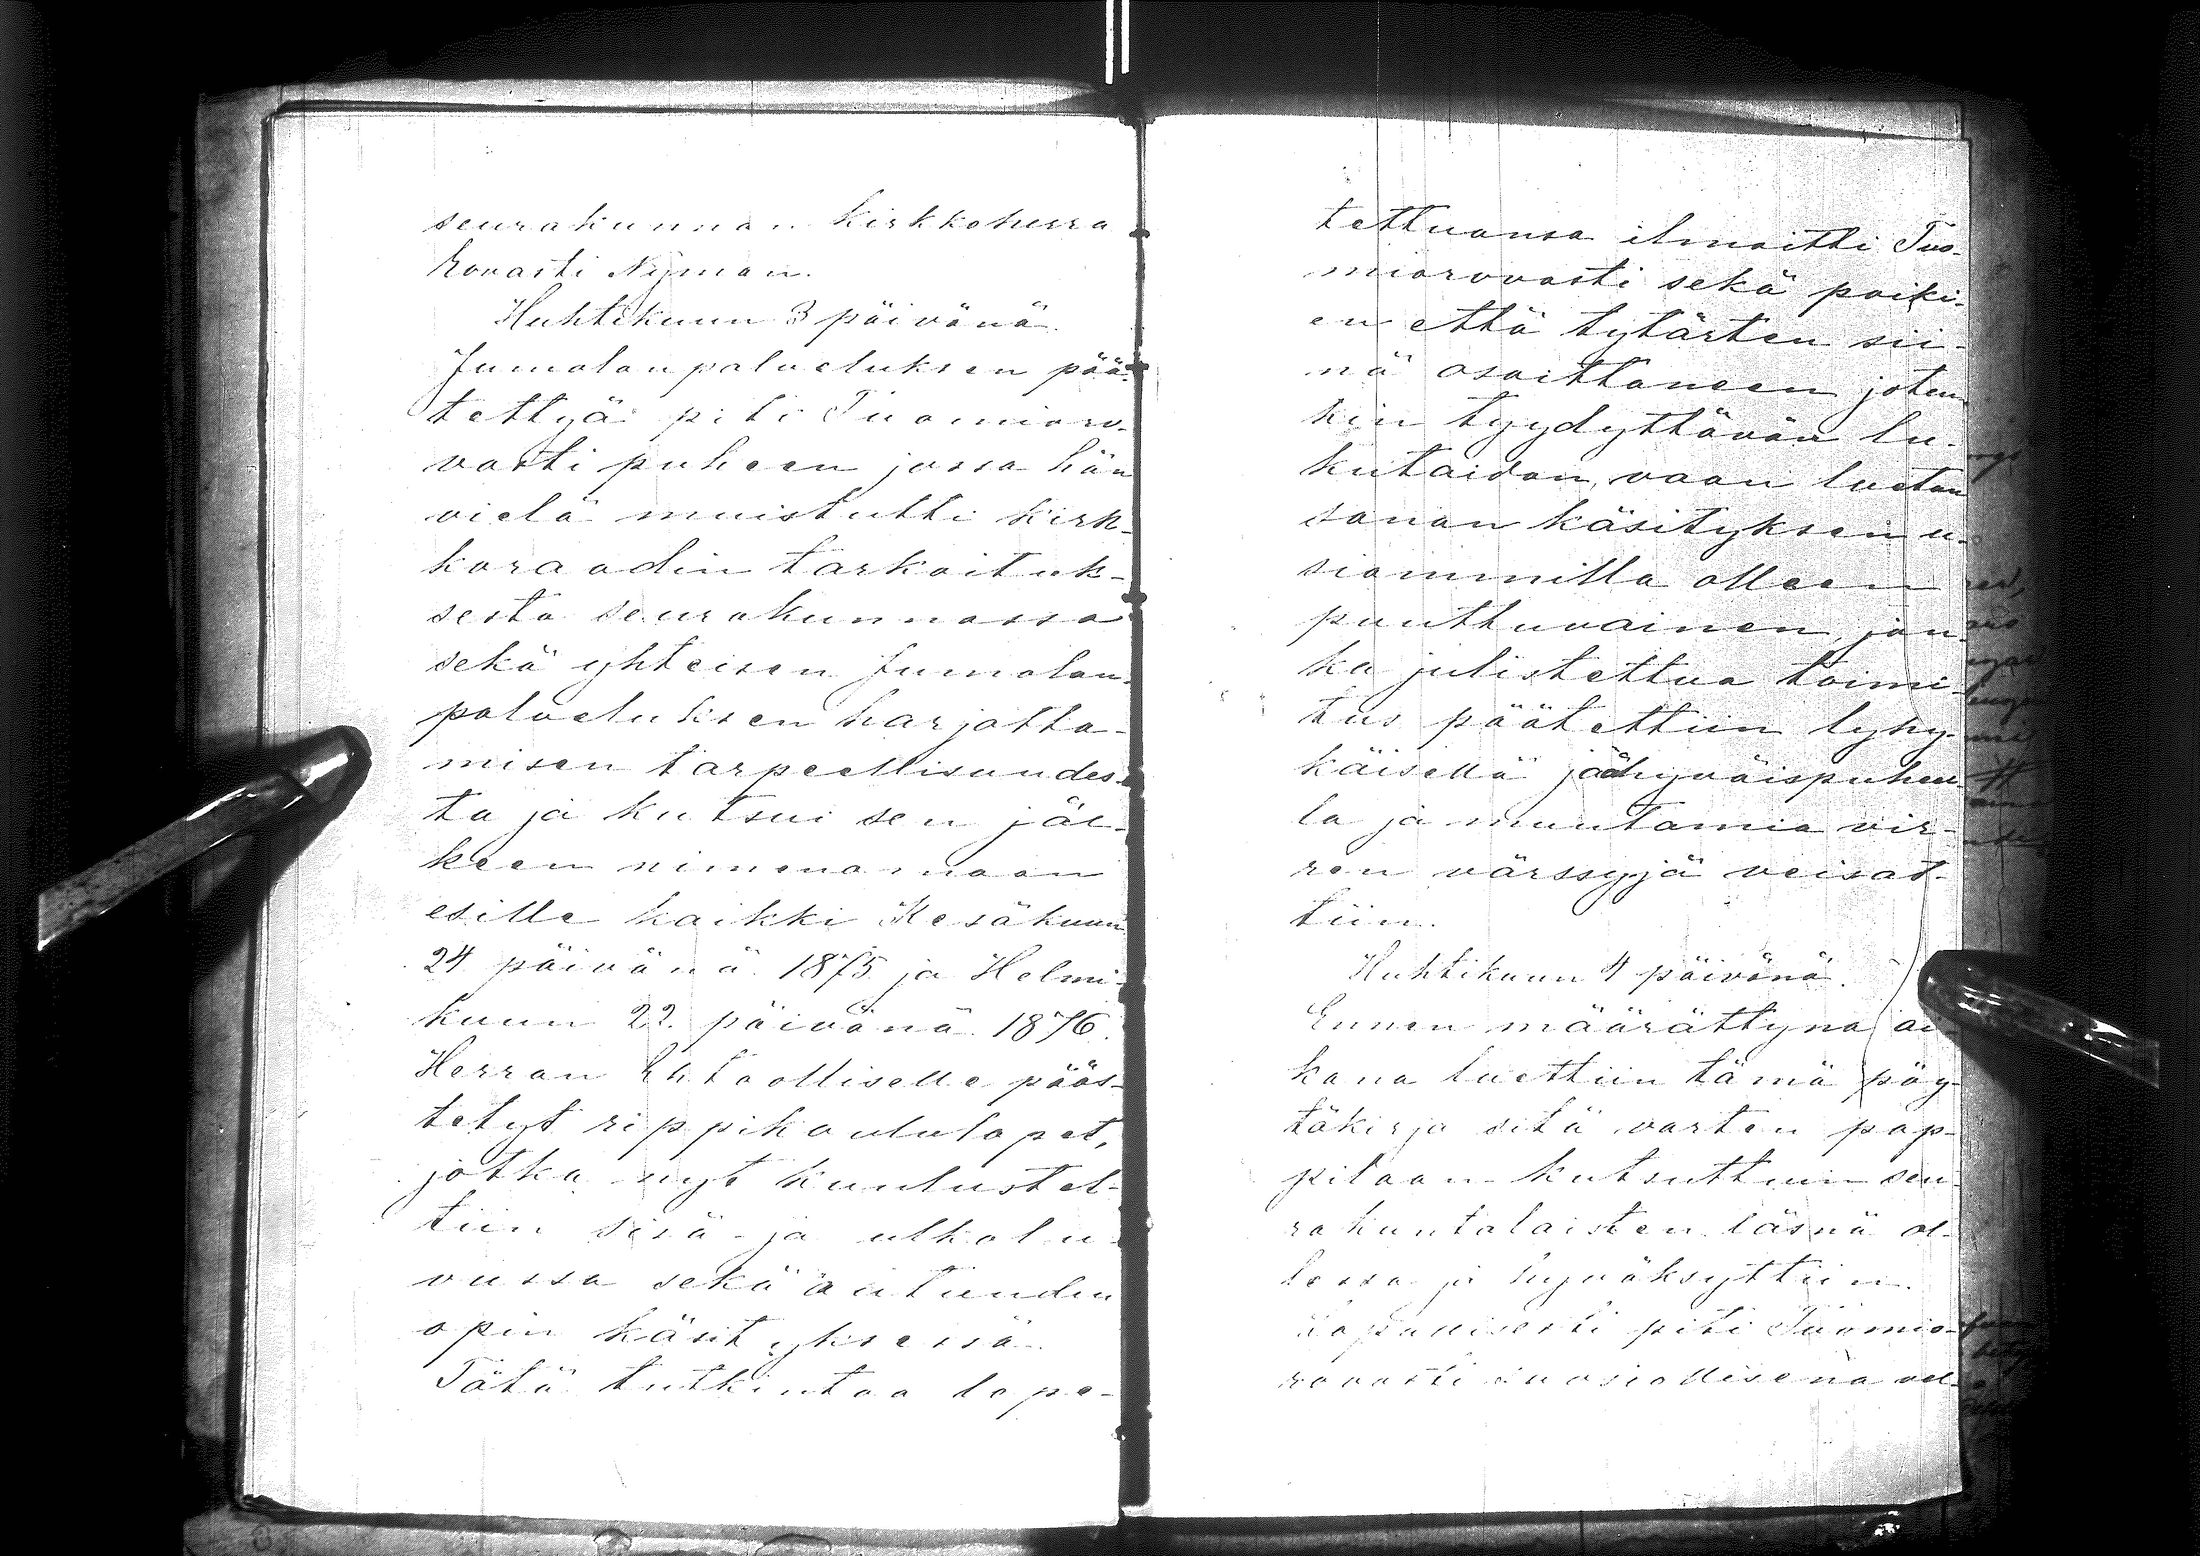 seurakunnan kirkkoherra
Rovasti Nyman.
Huhtikuun 3 päivänä.
Jumalanpalveluksen pää-
tettyä piti Tuomioro-
vasti puheen jossa hän
vielä muistutti kirk-
koraadin tarkoituk-
sesta seurakunnassa
sekä yhteisen Jumalan-
palveluksen harjotta-
misen tarpeellisuudes-
ta ja kutsui sen jäl-
keen nimenomaan
esille kaikki Kesäkuun
24 päivänä 1875 ja Helmi-
kuun 22. päivänä 1876.
Herran Ehtoolliselle pääs-
tetyt rippikoululapset,
jotka nyt kuulustel-
tiin sisä- ja ulkolu-
vussa sekä autuuden
opin käsityksessä.
Tätä tutkintaa lope-
tettuansa ilmoitti Tuo-
miorovasti sekä poiki-
en että tytärten sii-
nä osoittaneen joten
kin tyydyttävän lu-
kutaidon, vaan luetun
sanan käsityksen u-
siammilla olleen
puuttuvainen, jon-
ka julistettua toimi-
tus päätettiin lyhy-
käisellä jäähyväispuheel-
la ja muutamia vir-
ren värssyjä veisat-
tiin.
Huhtikuun 4 päivänä.
Ennen määrättynä ai-
kana luettiin tämä pöy-
täkirja sitä varten pap-
pilaan kutsuttuin seu-
rakuntalaisten läsnä ol-
lessa ja hyväksyttiin.
Lopullisesti piti Tuomio-
rovasti suosiollisena